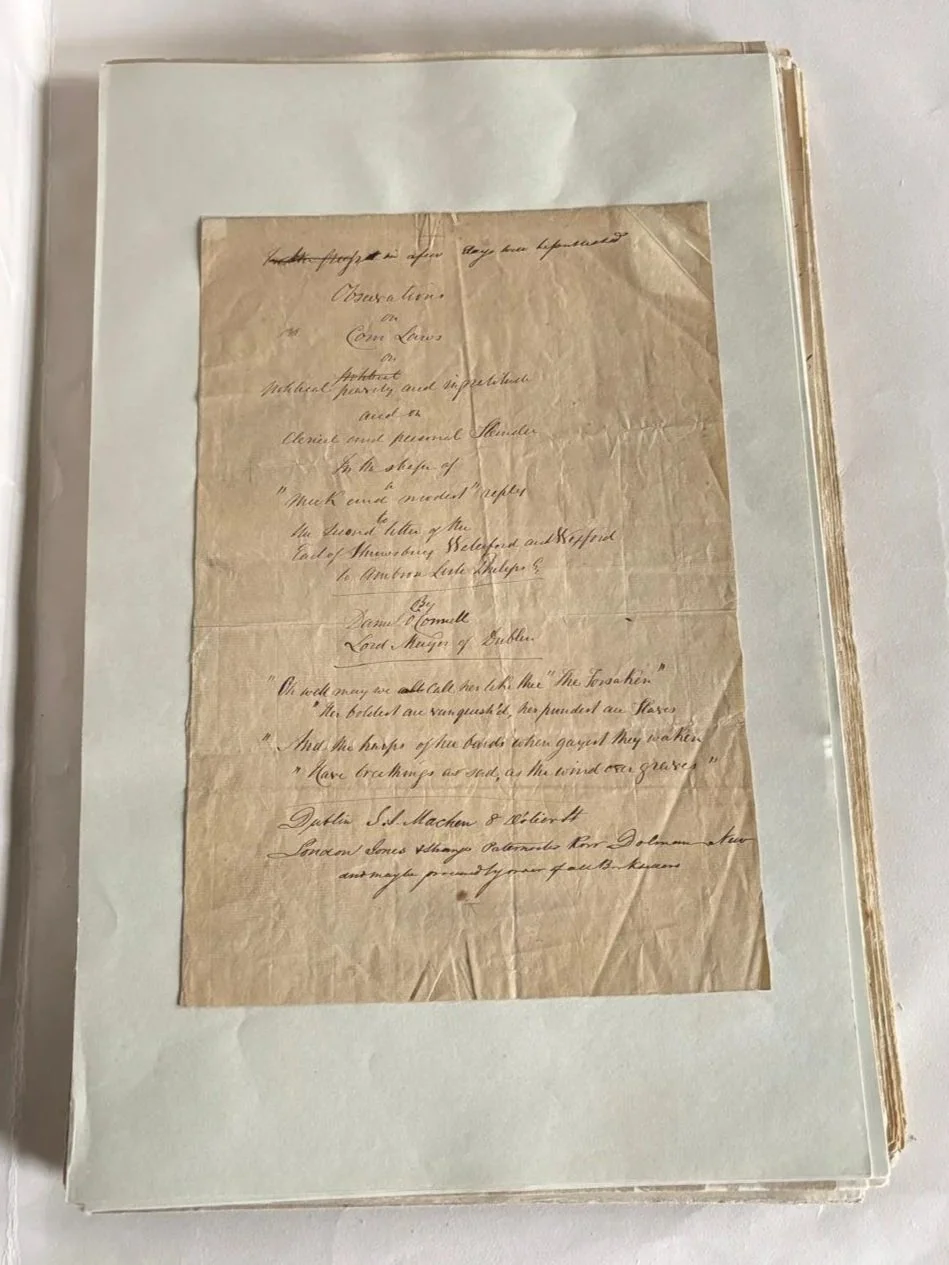 in after days will be published
Observations
on
Corn Laws
on
political pravity and ingratitude
and on
Clerical and personal Slander
In the shape of
a
"meek and modest" reply
to
the second letter of the
Earl of Shrewsbury Waterford and Wexford
to Ambrose Lisle Philips E
By
Daniel O'Connell
Lord Mayor of Dublin
"Oh well may we call her like thee "The Forsaken"
"Her boldest are vanquish'd, her proudest are Slaves
"And the harps of her bards when gayest they waken
"Have breathings as sad, as the wind over graves"
Dublin S.J. Machen 8 D'olier St
London Jones & Paternoster Row Dolman New
and may be procured by order of all Booksellers